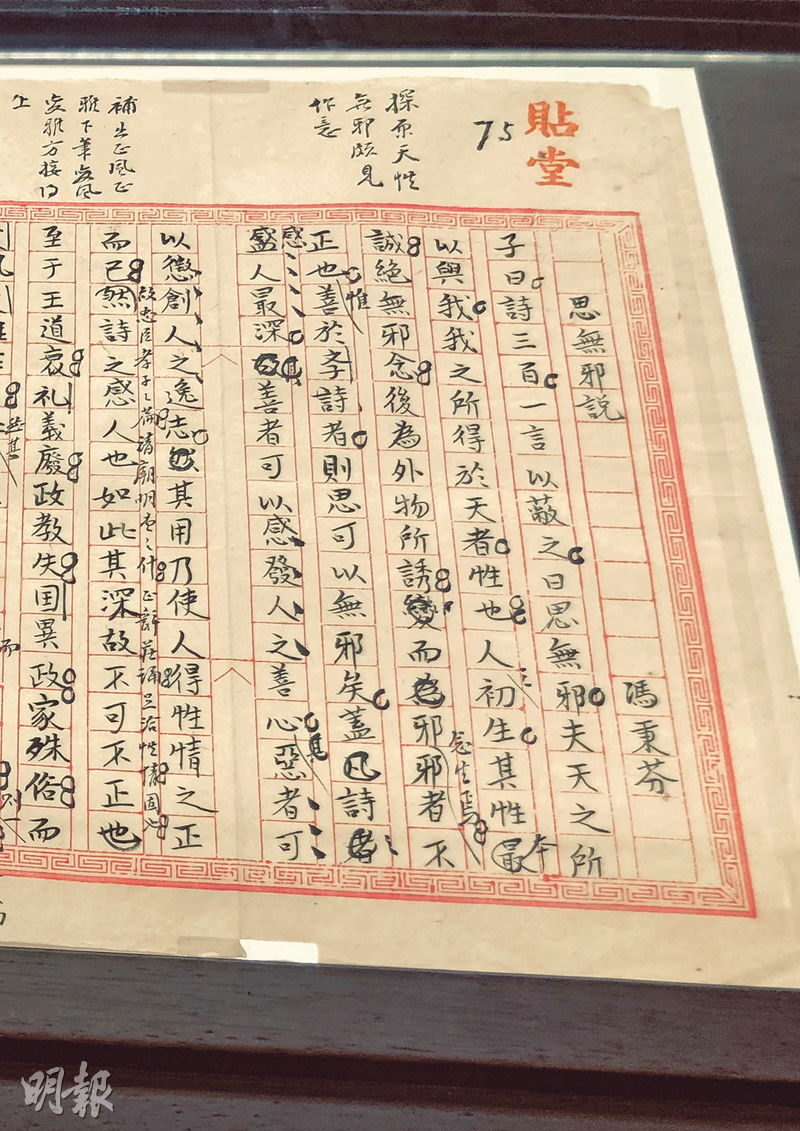 貼堂
75
探而天性
無邪頗見
作意
補出正風正
雅下筆變風
變雅方接得
上
思無邪說 馮秉芬
子曰詩三百一言以蔽之曰思無邪夫天之所
以與我我之所得於天者性也人初生其性最
本
誠絕無邪念後為外物所誘變而為邪邪者不
念生焉
正也善於斈詩者則思可以無邪矣蓋凡詩者
惟
盛人最深故善者可以感發人之善心惡者可
感
其
其
以懲創人之逸志然其用乃使人得性情之正
忠臣孝子之篇清廟明堂之什正辭莊誦足洽性情固也
而已然詩之感人也如此其深故不可不正也
至于王道衰礼義廢政教失国異政家殊俗而
明報